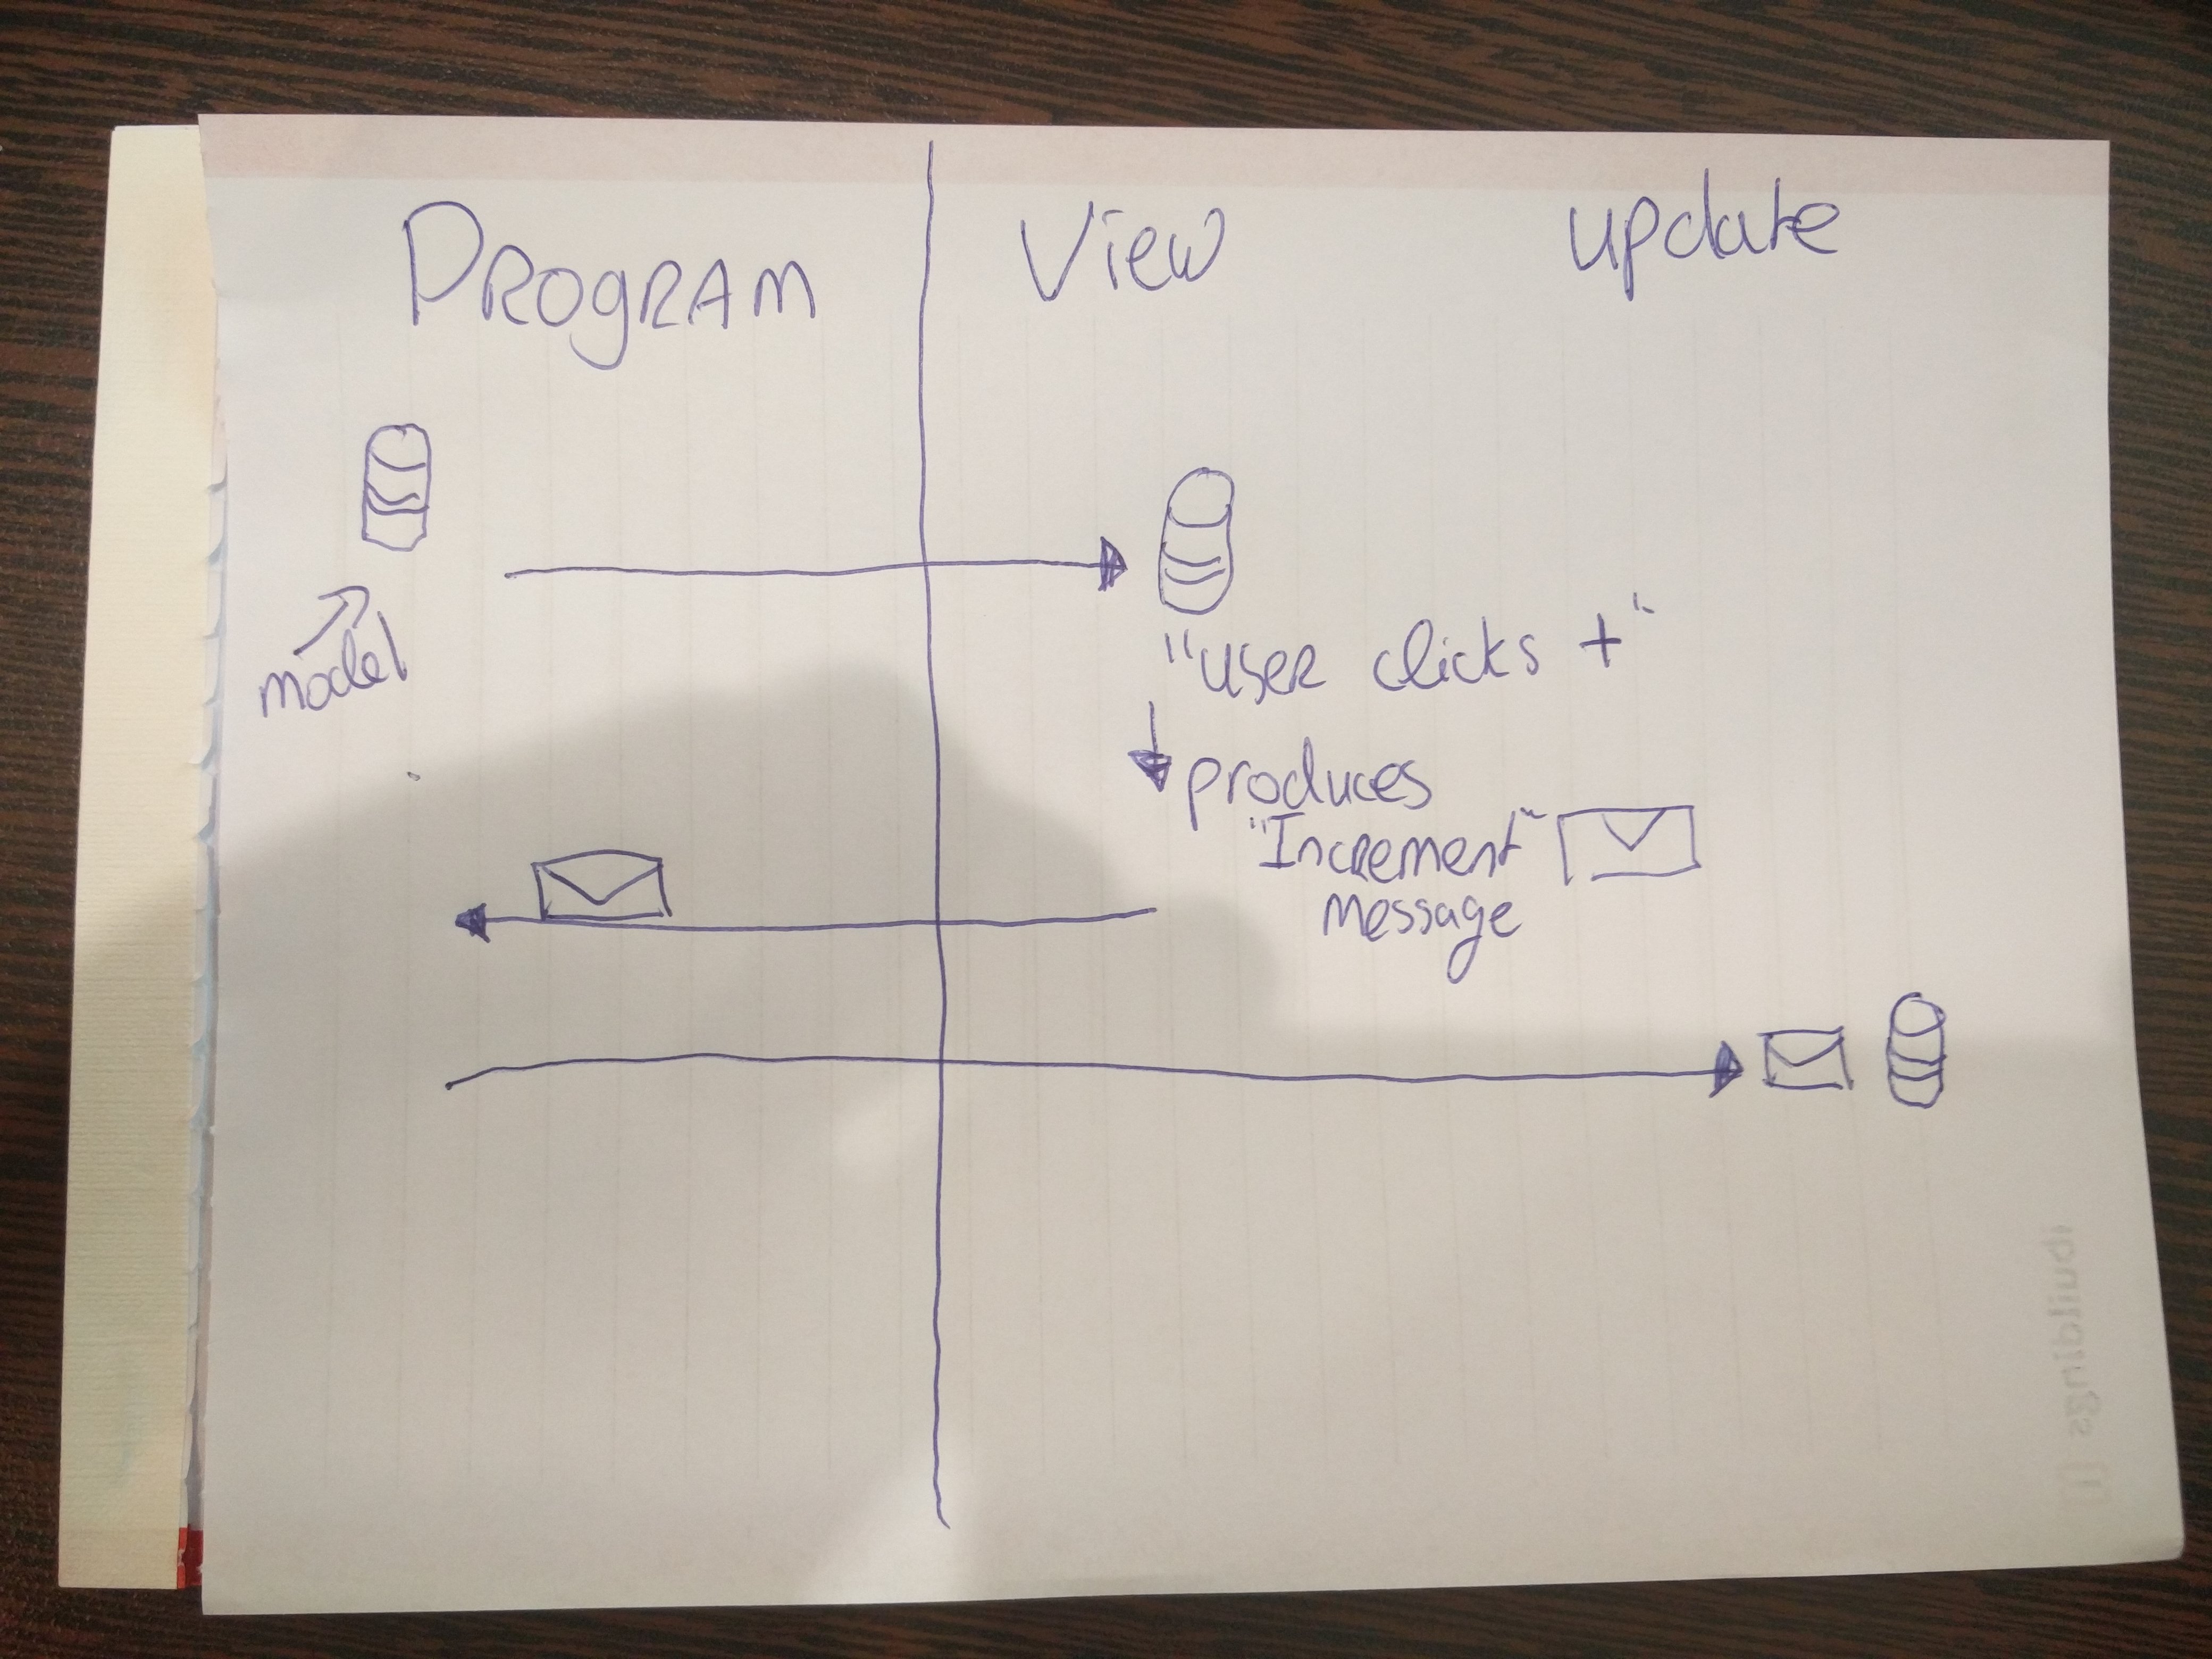 PROGRAM
View
update
model
"user clicks +"
produces
"Increment"
message
ibuildings